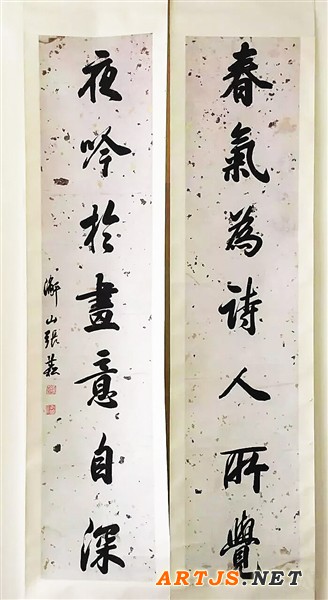 春氣為詩人所覺
夜吟於畫意自深
ARTJS.NET